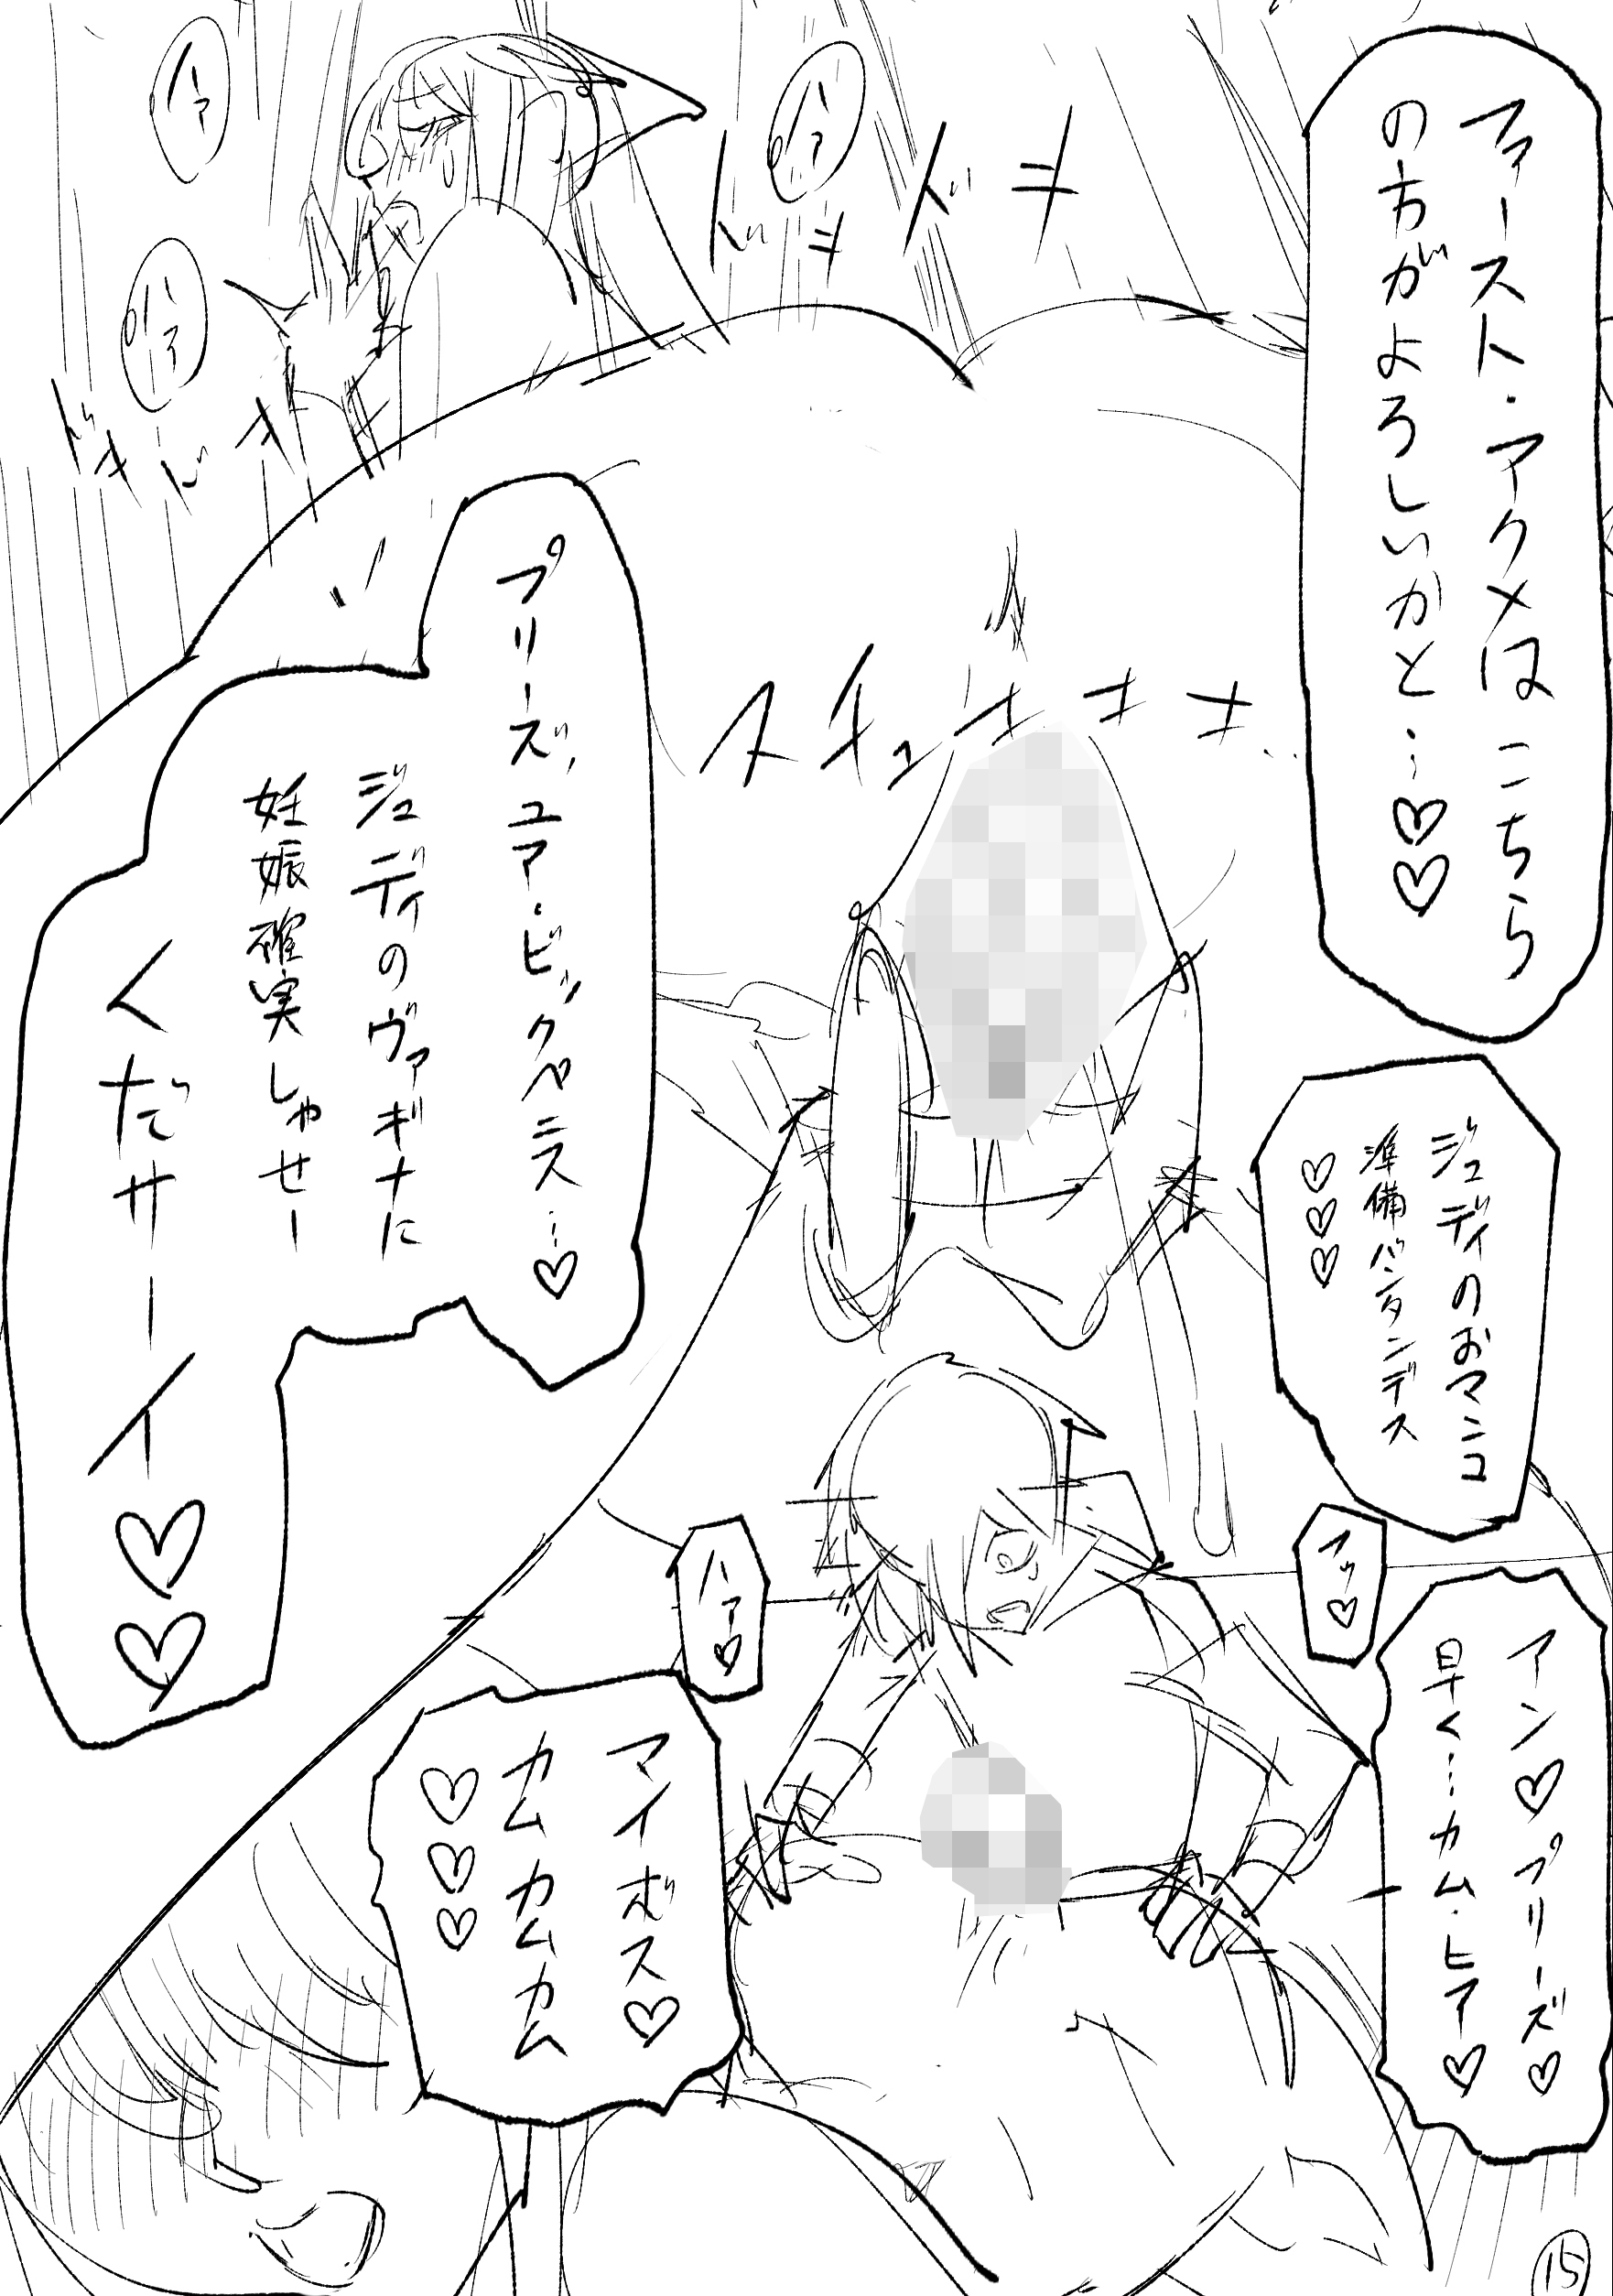 ファースト・アクメはこちら
の方がよろしいかと…♡♡
ハァ
ハァ
ハァ
ドキ
ドキ
ドキ
ドキ
プリーズ,ユア・ビックペニス…♡
ジュディのヴァギナに
妊娠確実しゃせー
くだサーイ♡♡
ジュディのおマンコ
準備バンタンデス
♡♡♡
アッ♡
ハァ♡
アン♡プリーズ♡
早く…カム・ヒア♡
マイボス♡
カムカムカム
♡♡♡
15